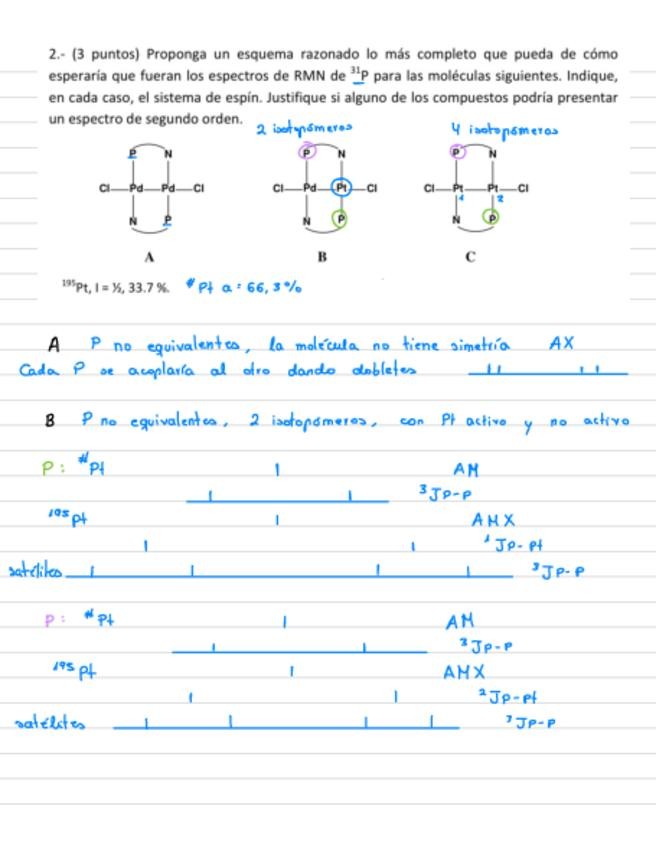 2.- (3 puntos) Proponga un esquema razonado lo más completo que pueda de cómo
esperaría que fueran los espectros de RMN de ³¹P para las moléculas siguientes. Indique,
en cada caso, el sistema de espín. Justifique si alguno de los compuestos podría presentar
un espectro de segundo orden.
2 isotopómeros
4 isotopómeros
P N P N P N
Cl Pd Pd Cl Cl Pd Pt Cl Cl Pt Pt Cl
1 2
N P N P N P
A B C
¹⁹⁵Pt, I = ½, 33.7 %. #Pt a: 66,3%
A P no equivalentes, la molécula no tiene simetría AX
Cada P se acoplaría al otro dando dobletes
B P no equivalentes, 2 isotopómeros, con Pt activo y no activo
P: #Pt AM
³JP-P
¹⁹⁵Pt AMX
¹JP-Pt
satélites ³JP-P
P: #Pt AM
³JP-P
¹⁹⁵Pt AMX
²JP-Pt
satélites ³JP-P